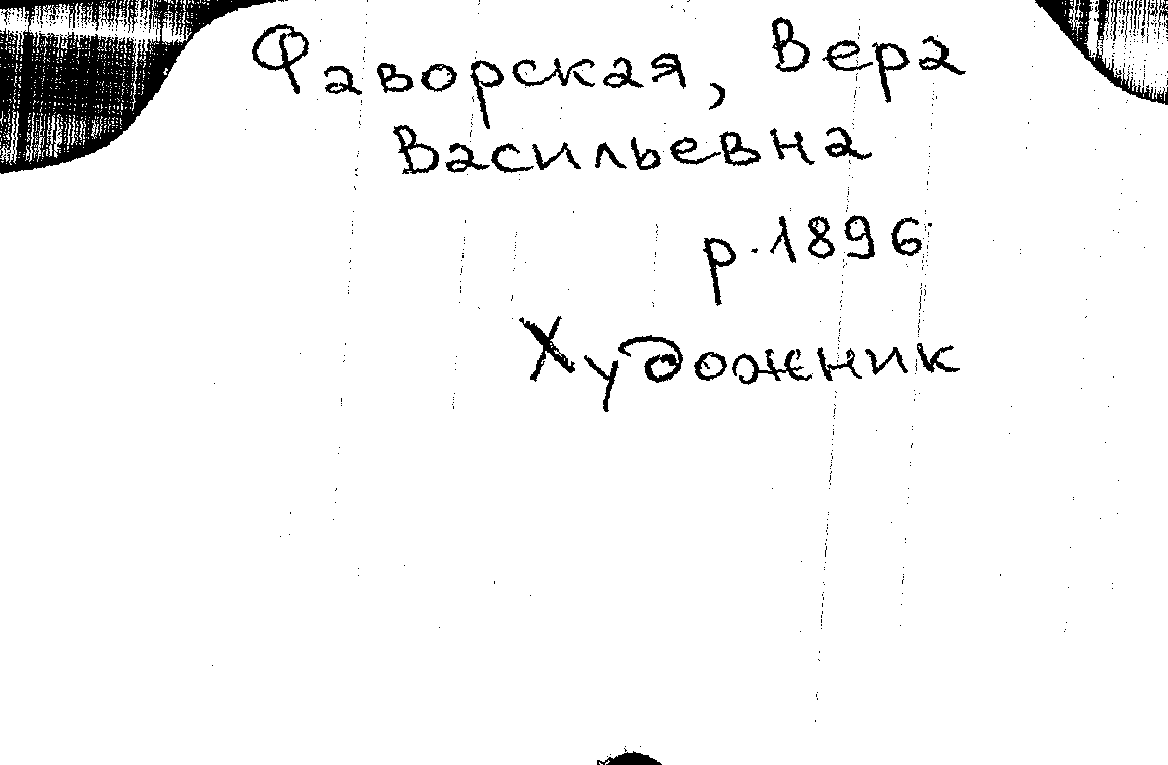 Фаворская, Вера
Васильевна
р. 1896
Художник